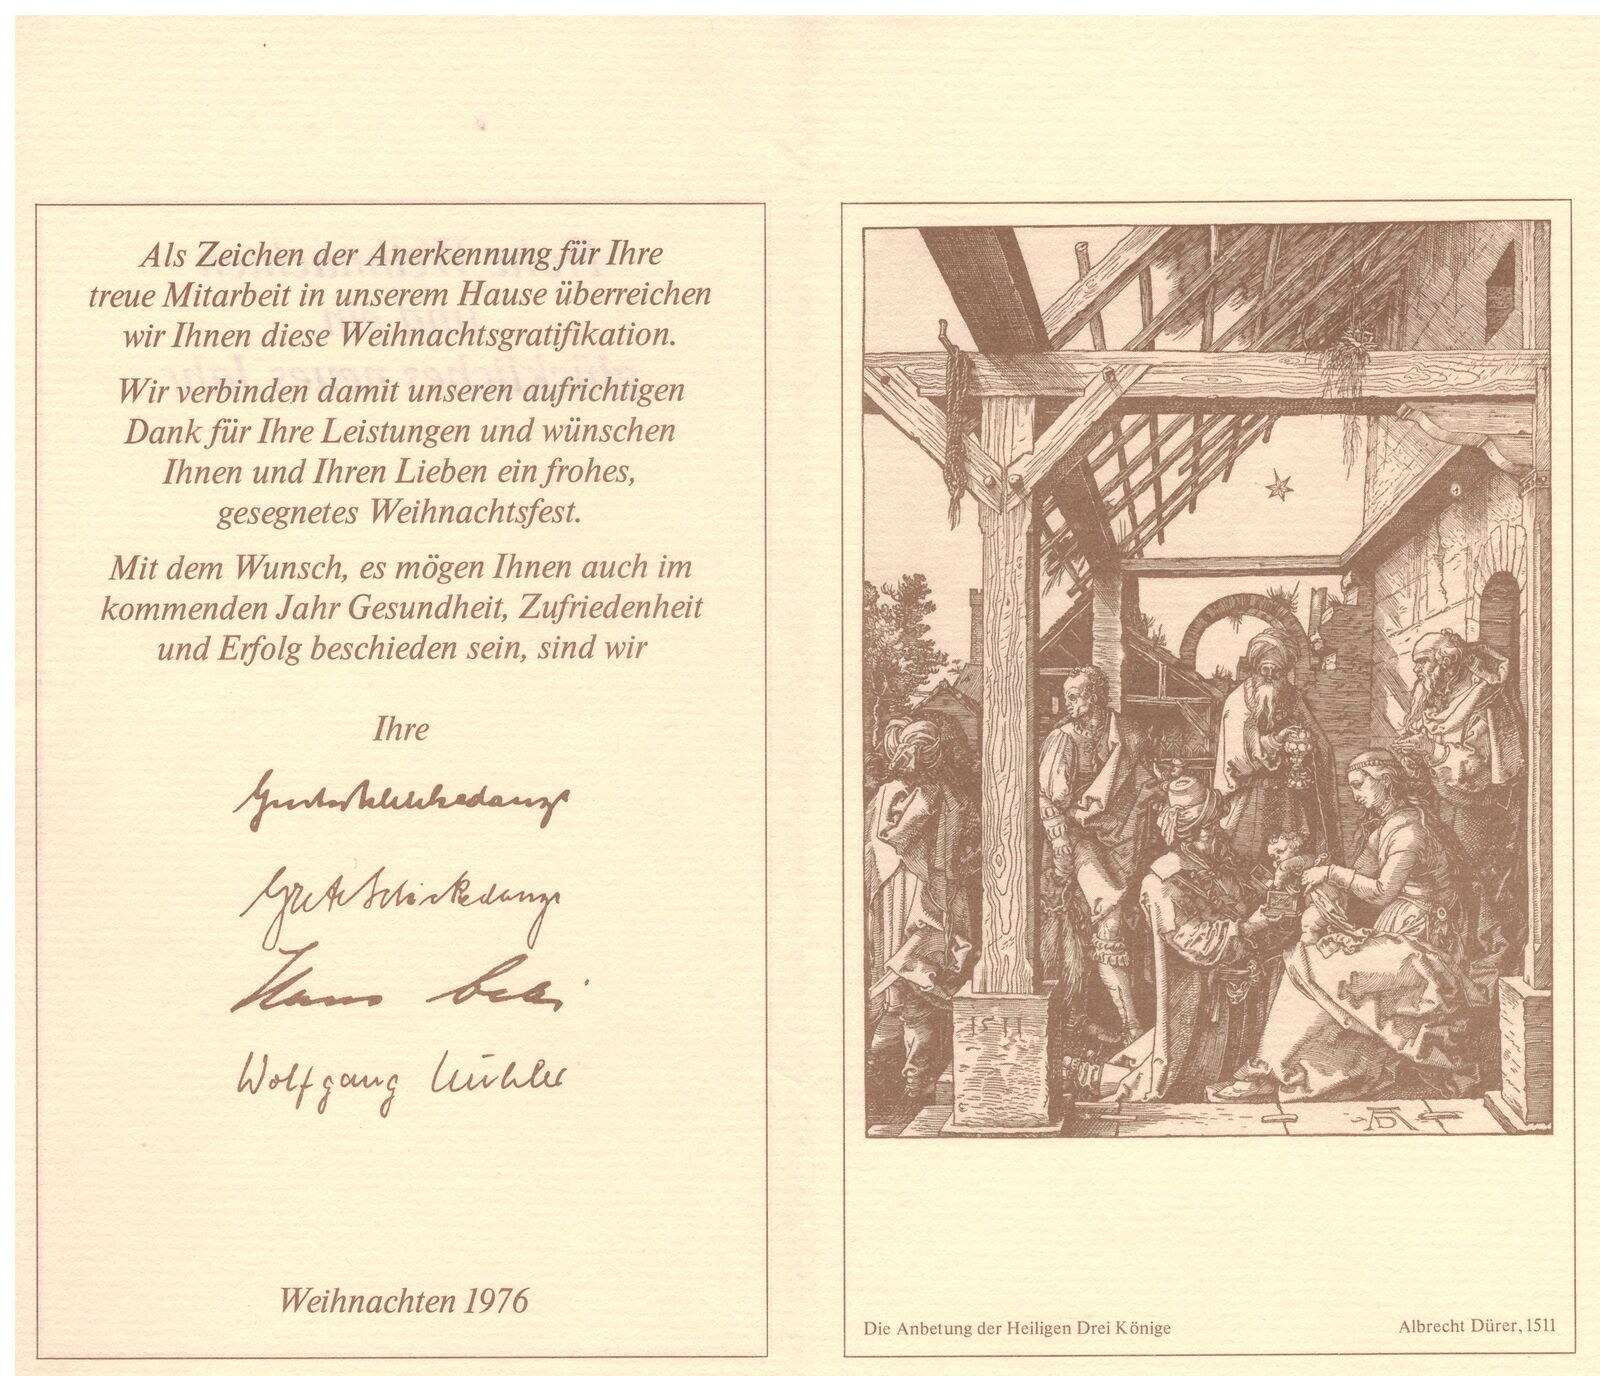 Als Zeichen der Anerkennung für Ihre
treue Mitarbeit in unserem Hause überreichen
wir Ihnen diese Weihnachtsgratifikation.
Wir verbinden damit unseren aufrichtigen
Dank für Ihre Leistungen und wünschen
Ihnen und Ihren Lieben ein frohes,
gesegnetes Weihnachtsfest.
Mit dem Wunsch, es mögen Ihnen auch im
kommenden Jahr Gesundheit, Zufriedenheit
und Erfolg beschieden sein, sind wir
Ihre
Grete Schickedanz
Hans
Wolfgang Bühler
Weihnachten 1976
1511
AD
Die Anbetung der Heiligen Drei Könige
Albrecht Dürer, 1511